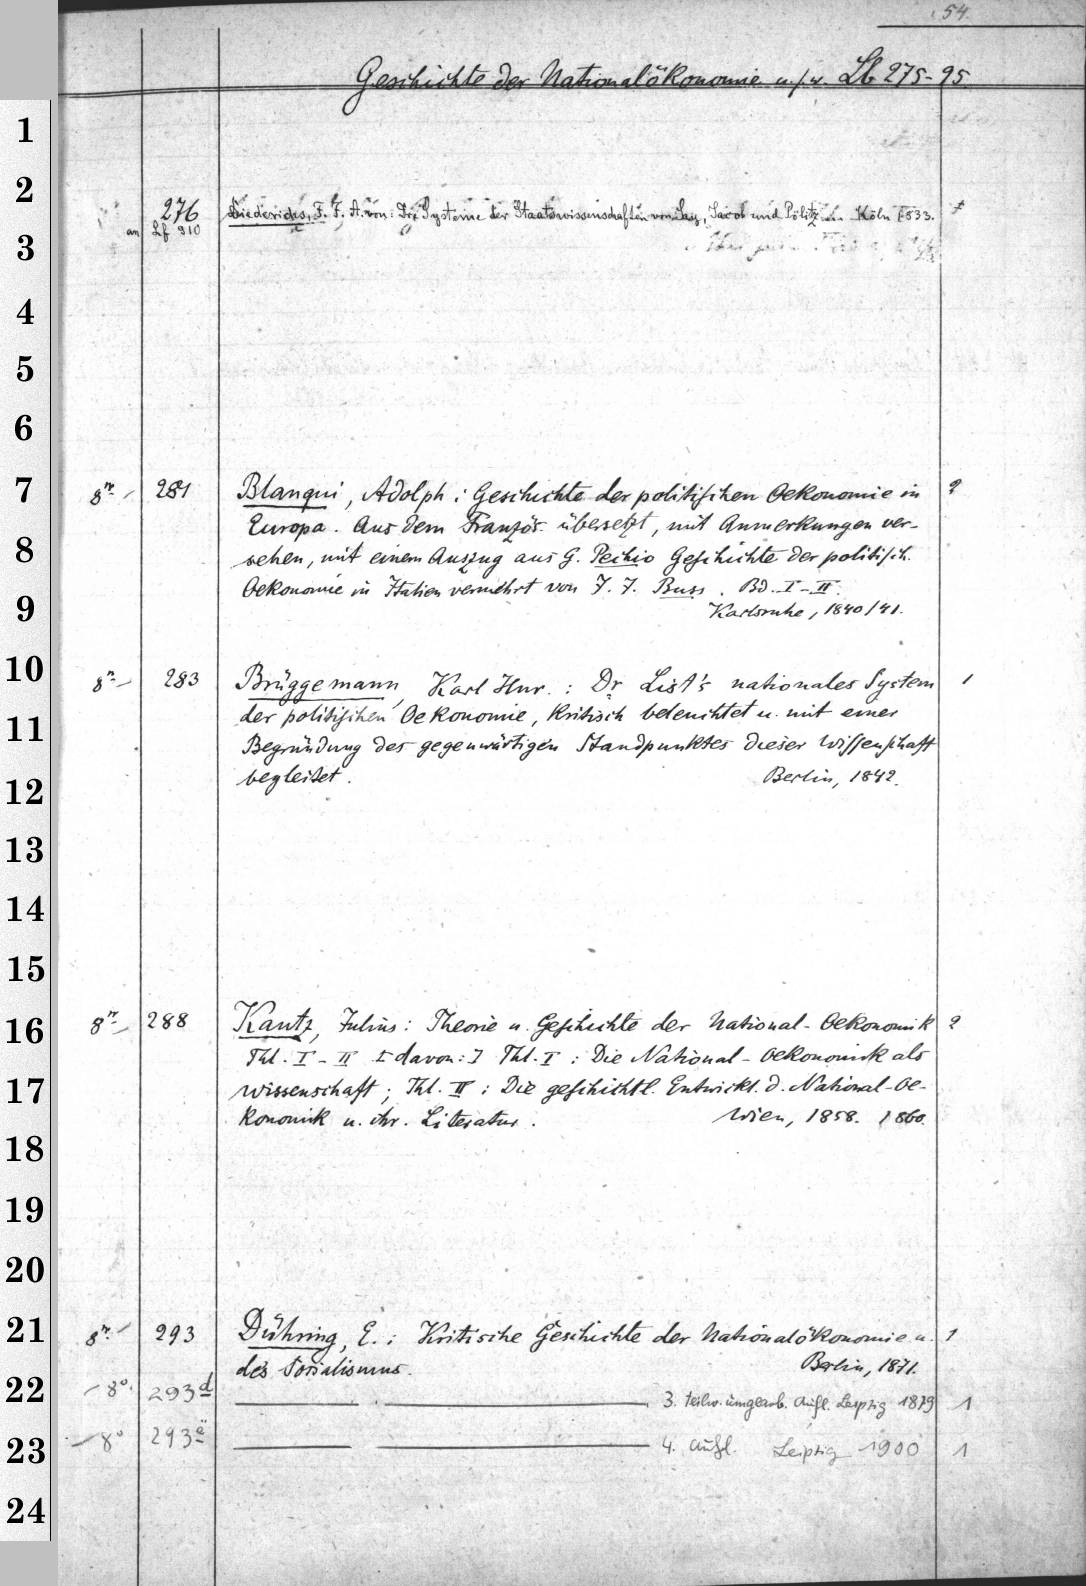 54.
Geschichte der Nationalökonomie u.s.w. Lb 275-95.
1
2
276 Diederichs, F. F. A. von: Die Systeme der Staatswissenschaften von Say, Jacob und Pölitz. Köln 1833. +
an Lf 910
3
4
5
6
7 8º 281 Blanqui, Adolph: Geschichte der politischen Oekonomie in 2
Europa. Aus dem Französ. übersetzt, mit Anmerkungen ver-
8 sehen, mit einem Auszug aus G. Pechio Geschichte der politisch.
Oekonomie in Italien vermehrt von J. J. Buss. Bd. I-II.
9 Karlsruhe, 1840/41.
10 8º 283 Brüggemann, Karl Hnr.: Dr List's nationales System 1
11 der politischen Oekonomie, kritisch beleuchtet u. mit einer
Begründung des gegenwärtigen Standpunktes dieser Wissenschaft
12 begleitet. Berlin, 1842.
13
14
15
16 8º 288 Kautz, Julius: Theorie u. Geschichte der National-Oekonomik 2
Thl. I-II [davon:] Thl. I: Die National-Oekonomik als
17 Wissenschaft; Thl. II: Die geschichtl. Entwickl. d. National-Oe-
konomik u. ihr. Literatur. Wien, 1858. 1860.
18
19
20
21 8º 293 Dühring, E.: Kritische Geschichte der Nationalökonomie u. 1
des Socialismus. Berlin, 1871.
22 8º 293d 3. teilw. umgearb. Aufl. Leipzig 1879 1
23 8º 293e 4. Aufl. Leipzig 1900 1
24